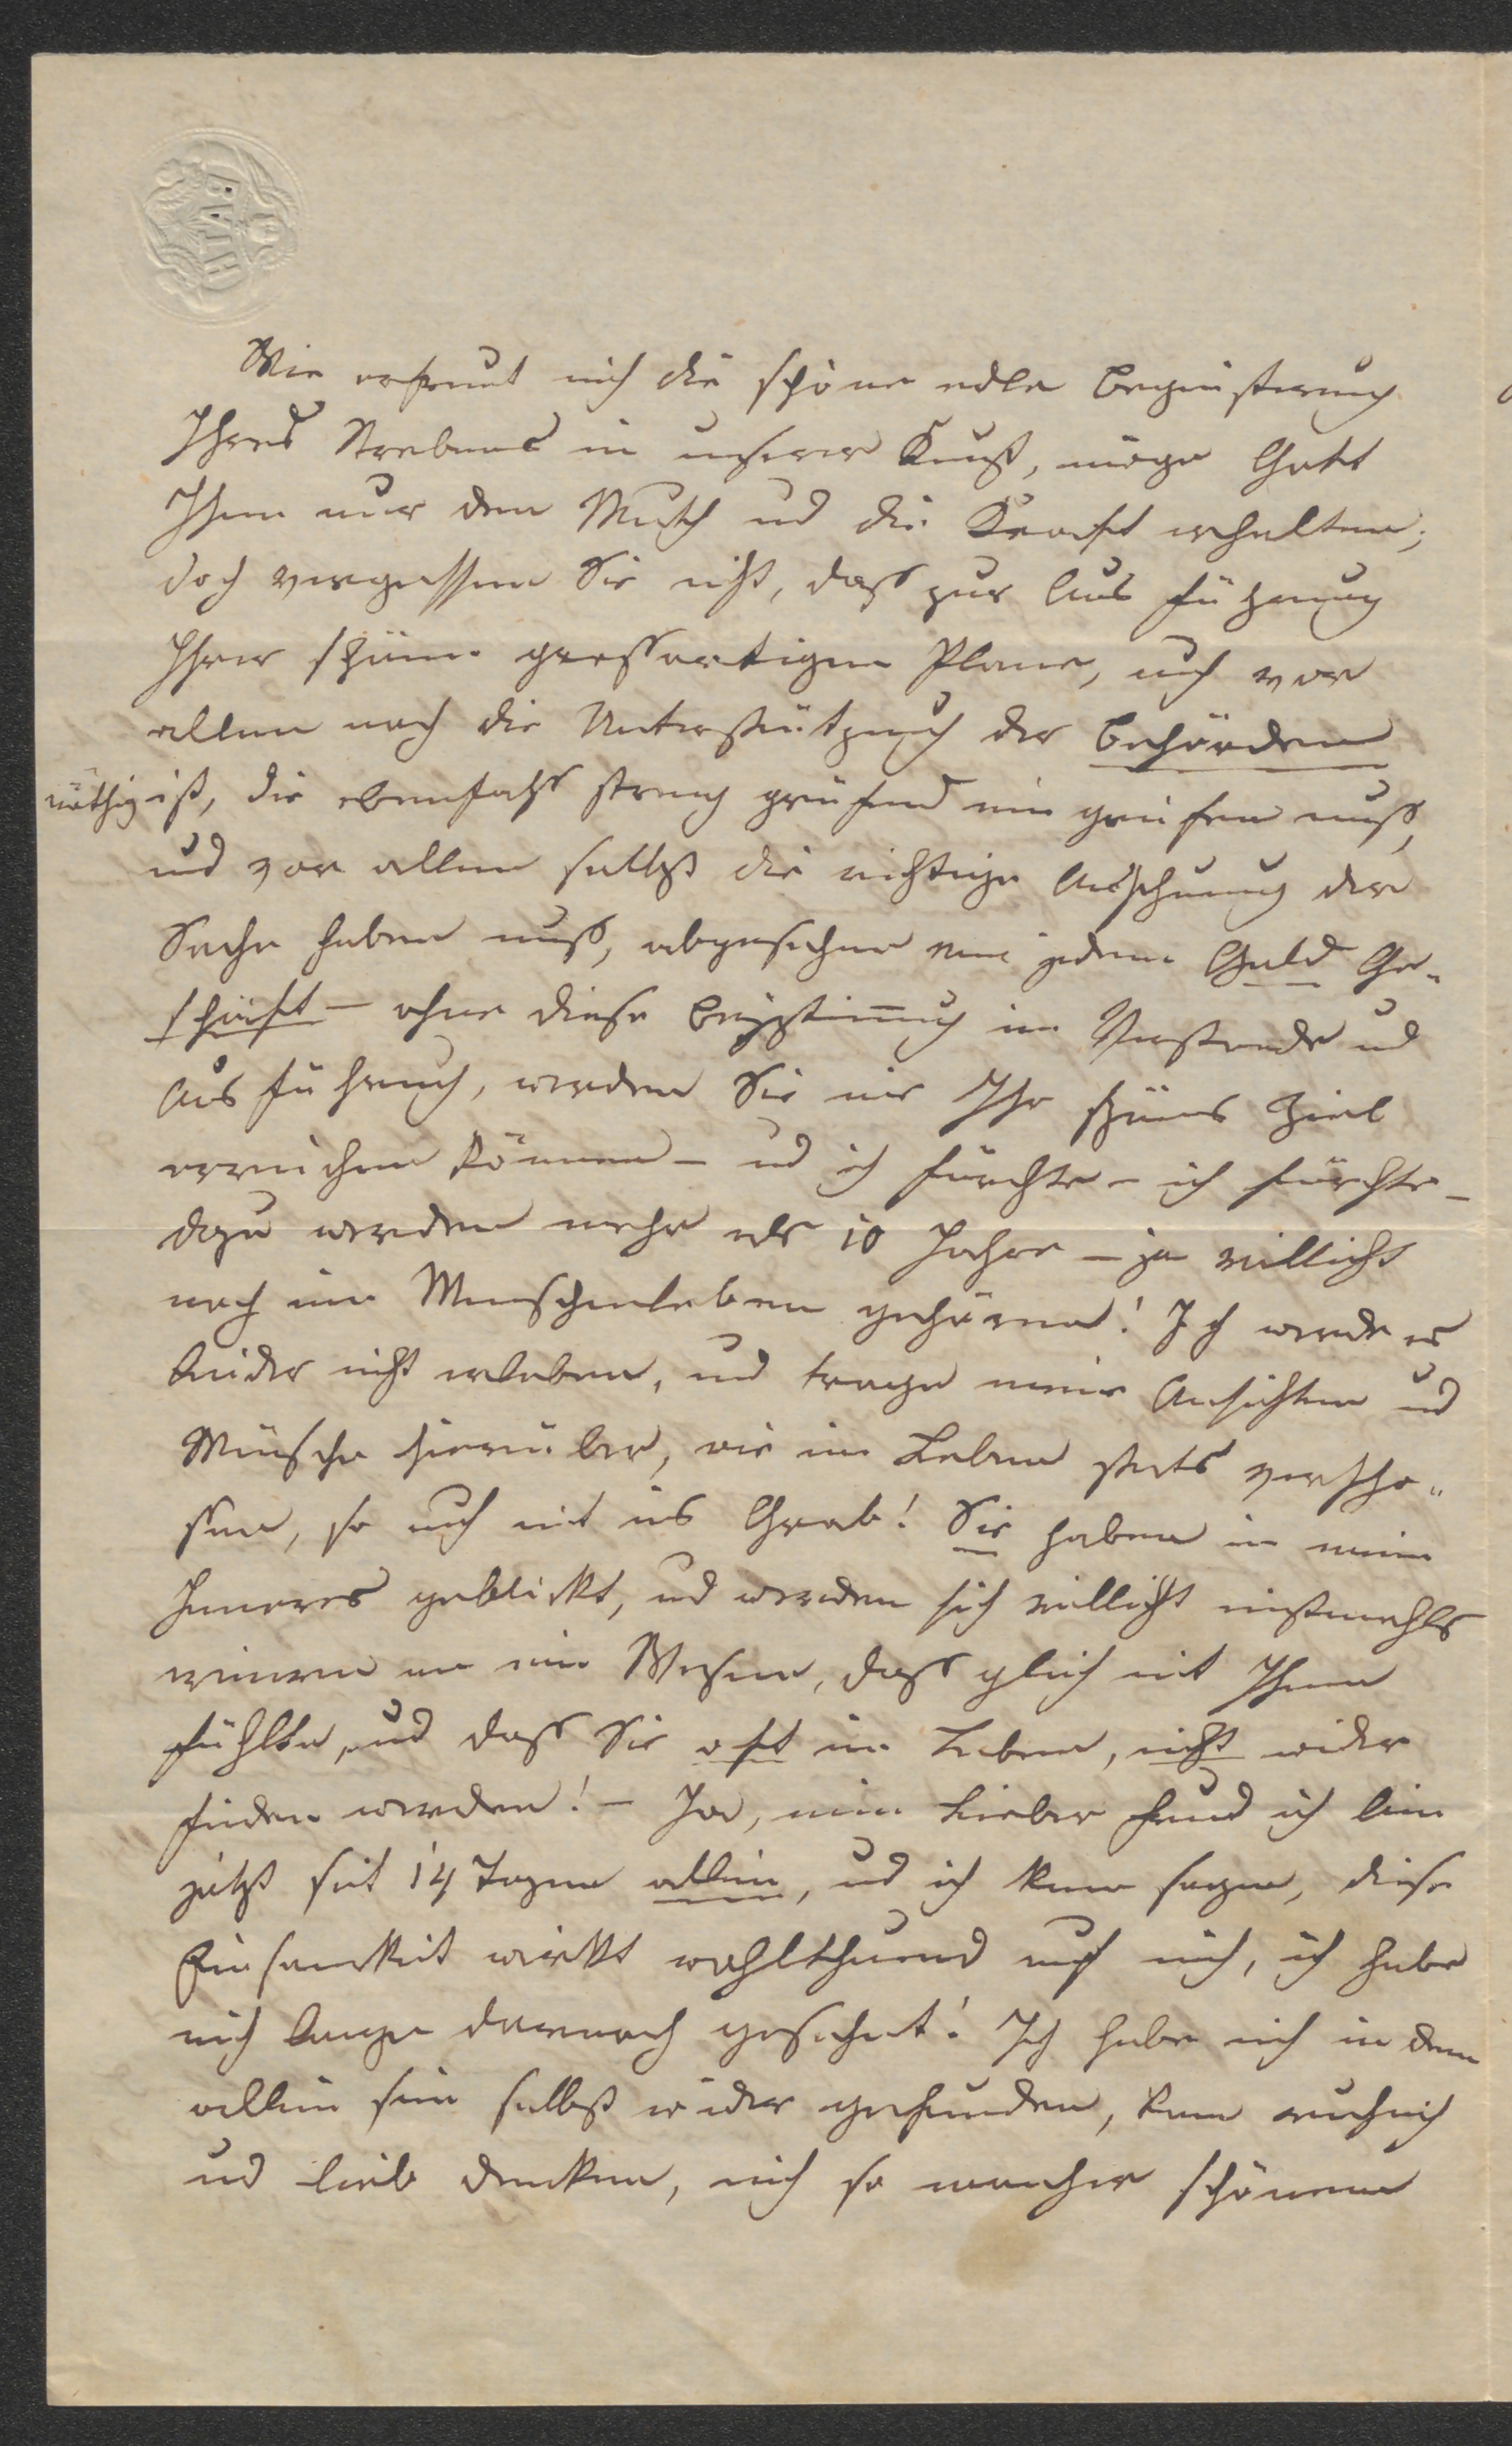 BATH
Wie erfreut mich die schöne edle Begeisterung
Ihres Strebens in unserer Kunst, möge Gott
Ihnen nur den Muth und die Kraft erhalten;
doch vergessen Sie nicht, dass zur Ausführung
Ihrer schönen grossartigen Plane, auch vor
allem noch die Unterstützung der Behörden
nöthig ist, die ebenfahls streng prüfend ein greifen muss,
und vor allem selbst die richtige Anschauung der
Sache haben muss, abgesehen von jedem Geld Ge-
schäft – ohne diese Beystimmung im Verstande und
Ausführung, werden Sie nie Ihr schönes Ziel
erreichen können – und ich fürchte – ich fürchte –
dazu werden mehr als 10 Jahre – ja villeicht
noch ein Menschenleben gehören! Ich werde es
leider nicht erleben, und trage meine Ansichten und
Wünsche hierüber, wie im Leben stets verschlo-
ssen, so auch mit ins Grab! Sie haben in mein
Inneres geblickt, und werden sich villeicht einstmahls
erinnern an ein Wesen, dass gleich mit Ihnen
fühlte, und dass Sie oft im Leben, nicht wider
finden werden! – Ja, mein Lieber Freund ich bin
jetzt seit 14 Tagen allein, und ich kann sagen, diese
Einsamkeit wirkt wohlthuend auf mich, ich habe
mich lange darnach gesehnt! Ich habe mich in dem
allein sein selbst wider gefunden, kann ruhich
und lieb denken, mich so mancher schönen